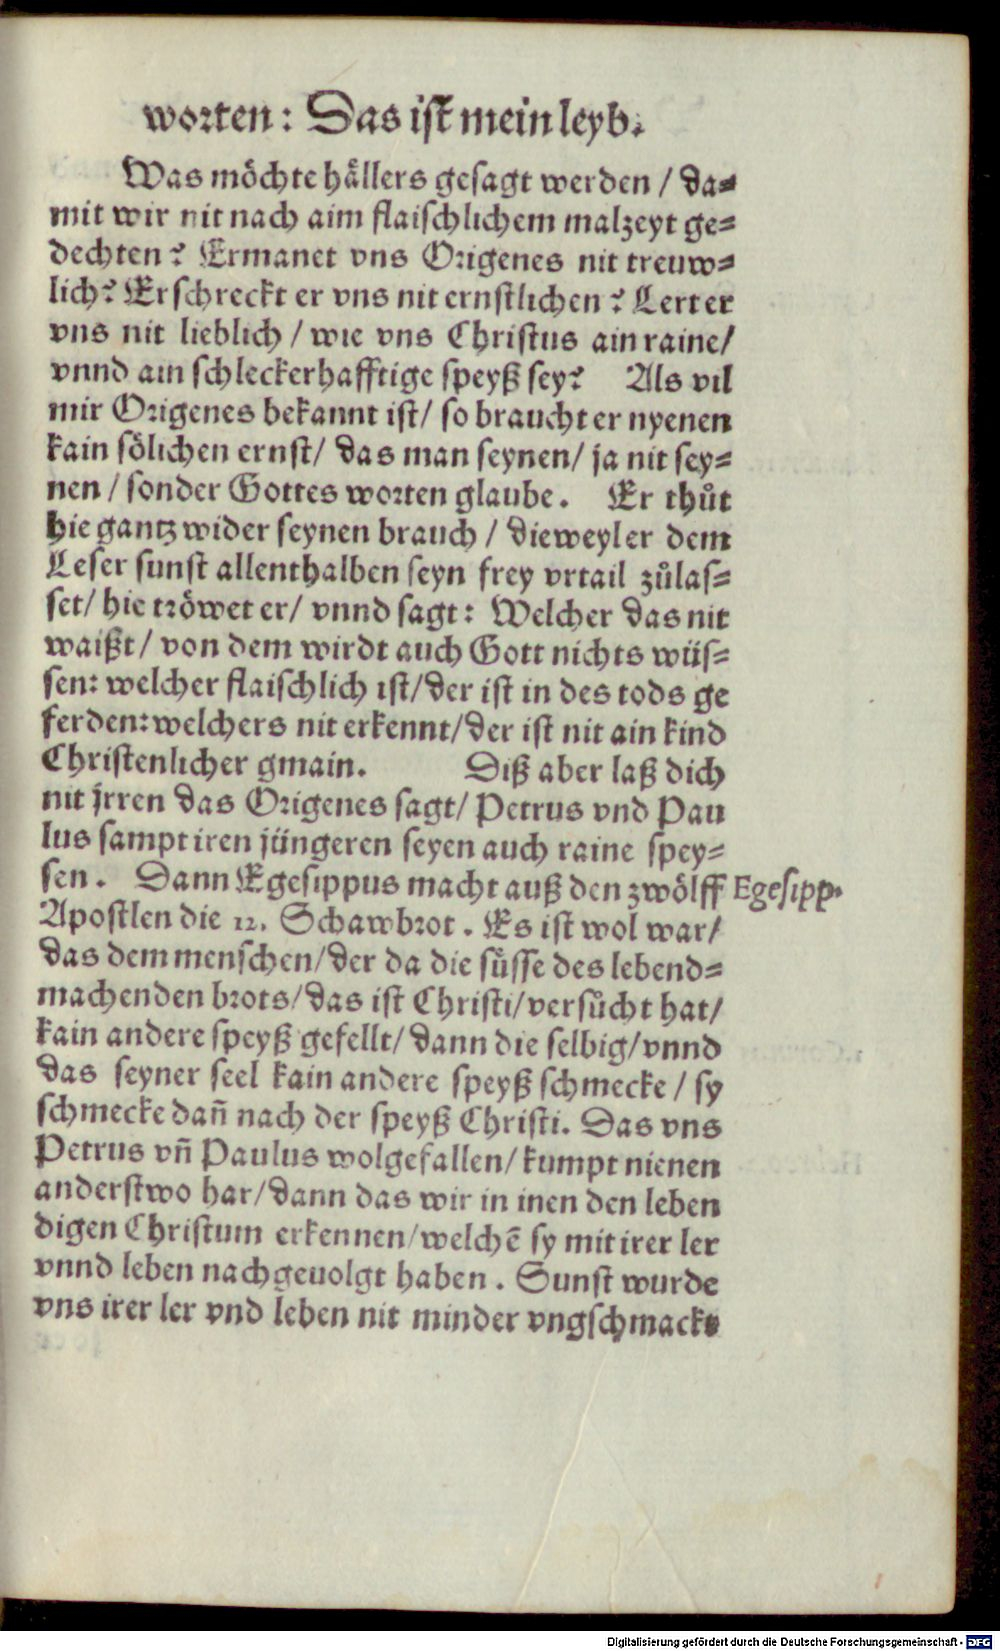 worten: Das ist mein leyb.
Was möchte hällers gesagt werden / da=
mit wir nit nach aim flaischlichem malzeyt ge=
dechten? Ermanet vns Origenes nit treuw=
lich? Erschreckt er vns nit ernstlichen? Lert er
vns nit lieblich / wie vns Christus ain raine/
vnnd ain schleckerhafftige speyß sey? Als vil
mir Origenes bekannt ist/ so braucht er nyenen
kain sölichen ernst/ das man seynen/ ja nit sey=
nen / sonder Gottes worten glaube. Er thůt
hie gantz wider seynen brauch / dieweyl er dem
Leser sunst allenthalben seyn frey vrtail zůlas=
set/ hie tröwet er/ vnnd sagt: Welcher das nit
waißt/ von dem wirdt auch Gott nichts wüs=
sen: welcher flaischlich ist/der ist in des tods ge
ferden:welchers nit erkennt/der ist nit ain kind
Christenlicher gmain. Diß aber laß dich
nit jrren das Origenes sagt/ Petrus vnd Pau
lus sampt iren jüngeren seyen auch raine spey=
sen. Dann Egesippus macht auß den zwölff Egesipp.
Apostlen die 12. Schawbrot. Es ist wol war/
das dem menschen/der da die süsse des lebend=
machenden brots/das ist Christi/versůcht hat/
kain andere speyß gefellt/dann die selbig/vnnd
das seyner seel kain andere speyß schmecke / sy
schmecke dañ nach der speyß Christi. Das vns
Petrus vñ Paulus wolgefallen/ kumpt nienen
anderstwo har/dann das wir in inen den leben
digen Christum erkennen/welchē sy mit irer ler
vnnd leben nachgeuolgt haben. Sunst wurde
vns irer ler vnd leben nit minder vngschmackt
Digitalisierung gefördert durch die Deutsche Forschungsgemeinschaft - DFG